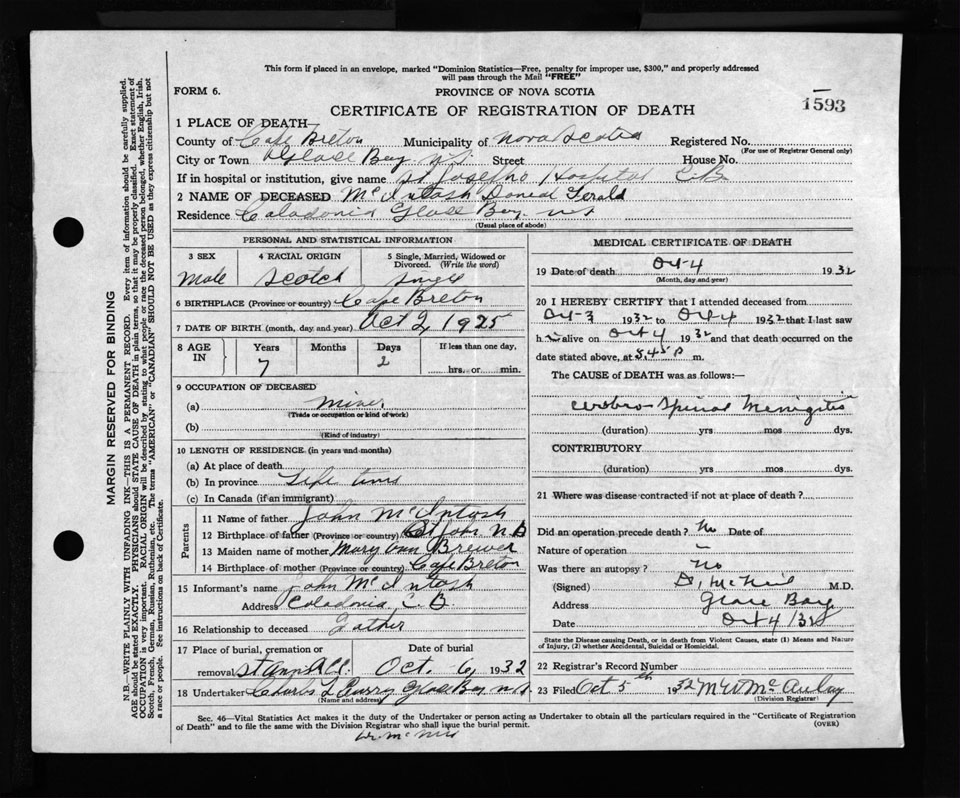 This form if placed in an envelope, marked "Dominion Statistics—Free, penalty for improper use, $300," and properly addressed
will pass through the Mail "FREE"
FORM 6.
PROVINCE OF NOVA SCOTIA
CERTIFICATE OF REGISTRATION OF DEATH
1593
1 PLACE OF DEATH
County of Cape Breton Municipality of Nova Scotia Registered No.
(For use of Registrar General only)
City or Town Glace Bay N.S. Street House No.
If in hospital or institution, give name St Josephs Hospital C.B.
2 NAME OF DECEASED McIntosh Daniel
Residence Caladonia Glace Bay N.S
(Usual place of abode)
PERSONAL AND STATISTICAL INFORMATION
3 SEX 4 RACIAL ORIGIN 5 Single, Married, Widowed or Divorced. (Write the word)
Male Scotch Single
6 BIRTHPLACE (Province or country) Cape Breton
7 DATE OF BIRTH (month, day and year) Oct 2, 1925
8 AGE IN Years Months Days If less than one day,
7 2 hrs. or min.
9 OCCUPATION OF DECEASED
(a) Miner
(Trade or occupation or kind of work)
(b)
(Kind of industry)
10 LENGTH OF RESIDENCE (in years and months)
(a) At place of death
(b) In province Life time
(c) In Canada (if an immigrant)
Parents
11 Name of father John McIntosh
12 Birthplace of father (Province or country) St John N.B
13 Maiden name of mother Mary Ann Brewer
14 Birthplace of mother (Province or country) Cape Breton
15 Informant's name John McIntosh
Address Caladonia, C.B.
16 Relationship to deceased Father
17 Place of burial, cremation or removal Date of burial
St Anns Oct. 6, 1932
18 Undertaker Charles L Curry Glace Bay N.S.
(Name and address)
MEDICAL CERTIFICATE OF DEATH
19 Date of death Oct 4 1932
(Month, day and year)
20 I HEREBY CERTIFY that I attended deceased from
Oct 3 1932 to Oct 4 1932 that I last saw
h im alive on Oct 4 1932 and that death occurred on the
date stated above, at 8.45 P m.
The CAUSE of DEATH was as follows:—
Cerebro Spinal Meningitis
(duration) yrs mos dys.
CONTRIBUTORY
(duration) yrs mos dys.
21 Where was disease contracted if not at place of death?
Did an operation precede death? No Date of
Nature of operation —
Was there an autopsy? No
(Signed) McNeil M.D.
Address Glace Bay
Date Oct 4/32
State the Disease causing Death, or in death from Violent Causes, state (1) Means and Nature
of Injury, (2) whether Accidental, Suicidal or Homicidal.
22 Registrar's Record Number
23 Filed Oct 5th 1932 McAulay
(Division Registrar)
Sec. 46—Vital Statistics Act makes it the duty of the Undertaker or person acting as Undertaker to obtain all the particulars required in the "Certificate of Registration
of Death" and to file the same with the Division Registrar who shall issue the burial permit.
(OVER)
Dr. McNeil
MARGIN RESERVED FOR BINDING
N.B.—WRITE PLAINLY WITH UNFADING INK—THIS IS A PERMANENT RECORD. Every item of information should be carefully supplied.
AGE should be stated EXACTLY. PHYSICIANS should STATE CAUSE OF DEATH in plain terms, so that it may be properly classified. Exact statement of
OCCUPATION is very important. RACIAL ORIGIN will be described by stating to what people or race the deceased person belonged, whether English, Irish,
Scotch, French, German, Russian, Ruthenian, etc. The terms "AMERICAN" or "CANADIAN" SHOULD NOT BE USED as they express citizenship but not
a race or people. See instructions on back of Certificate.